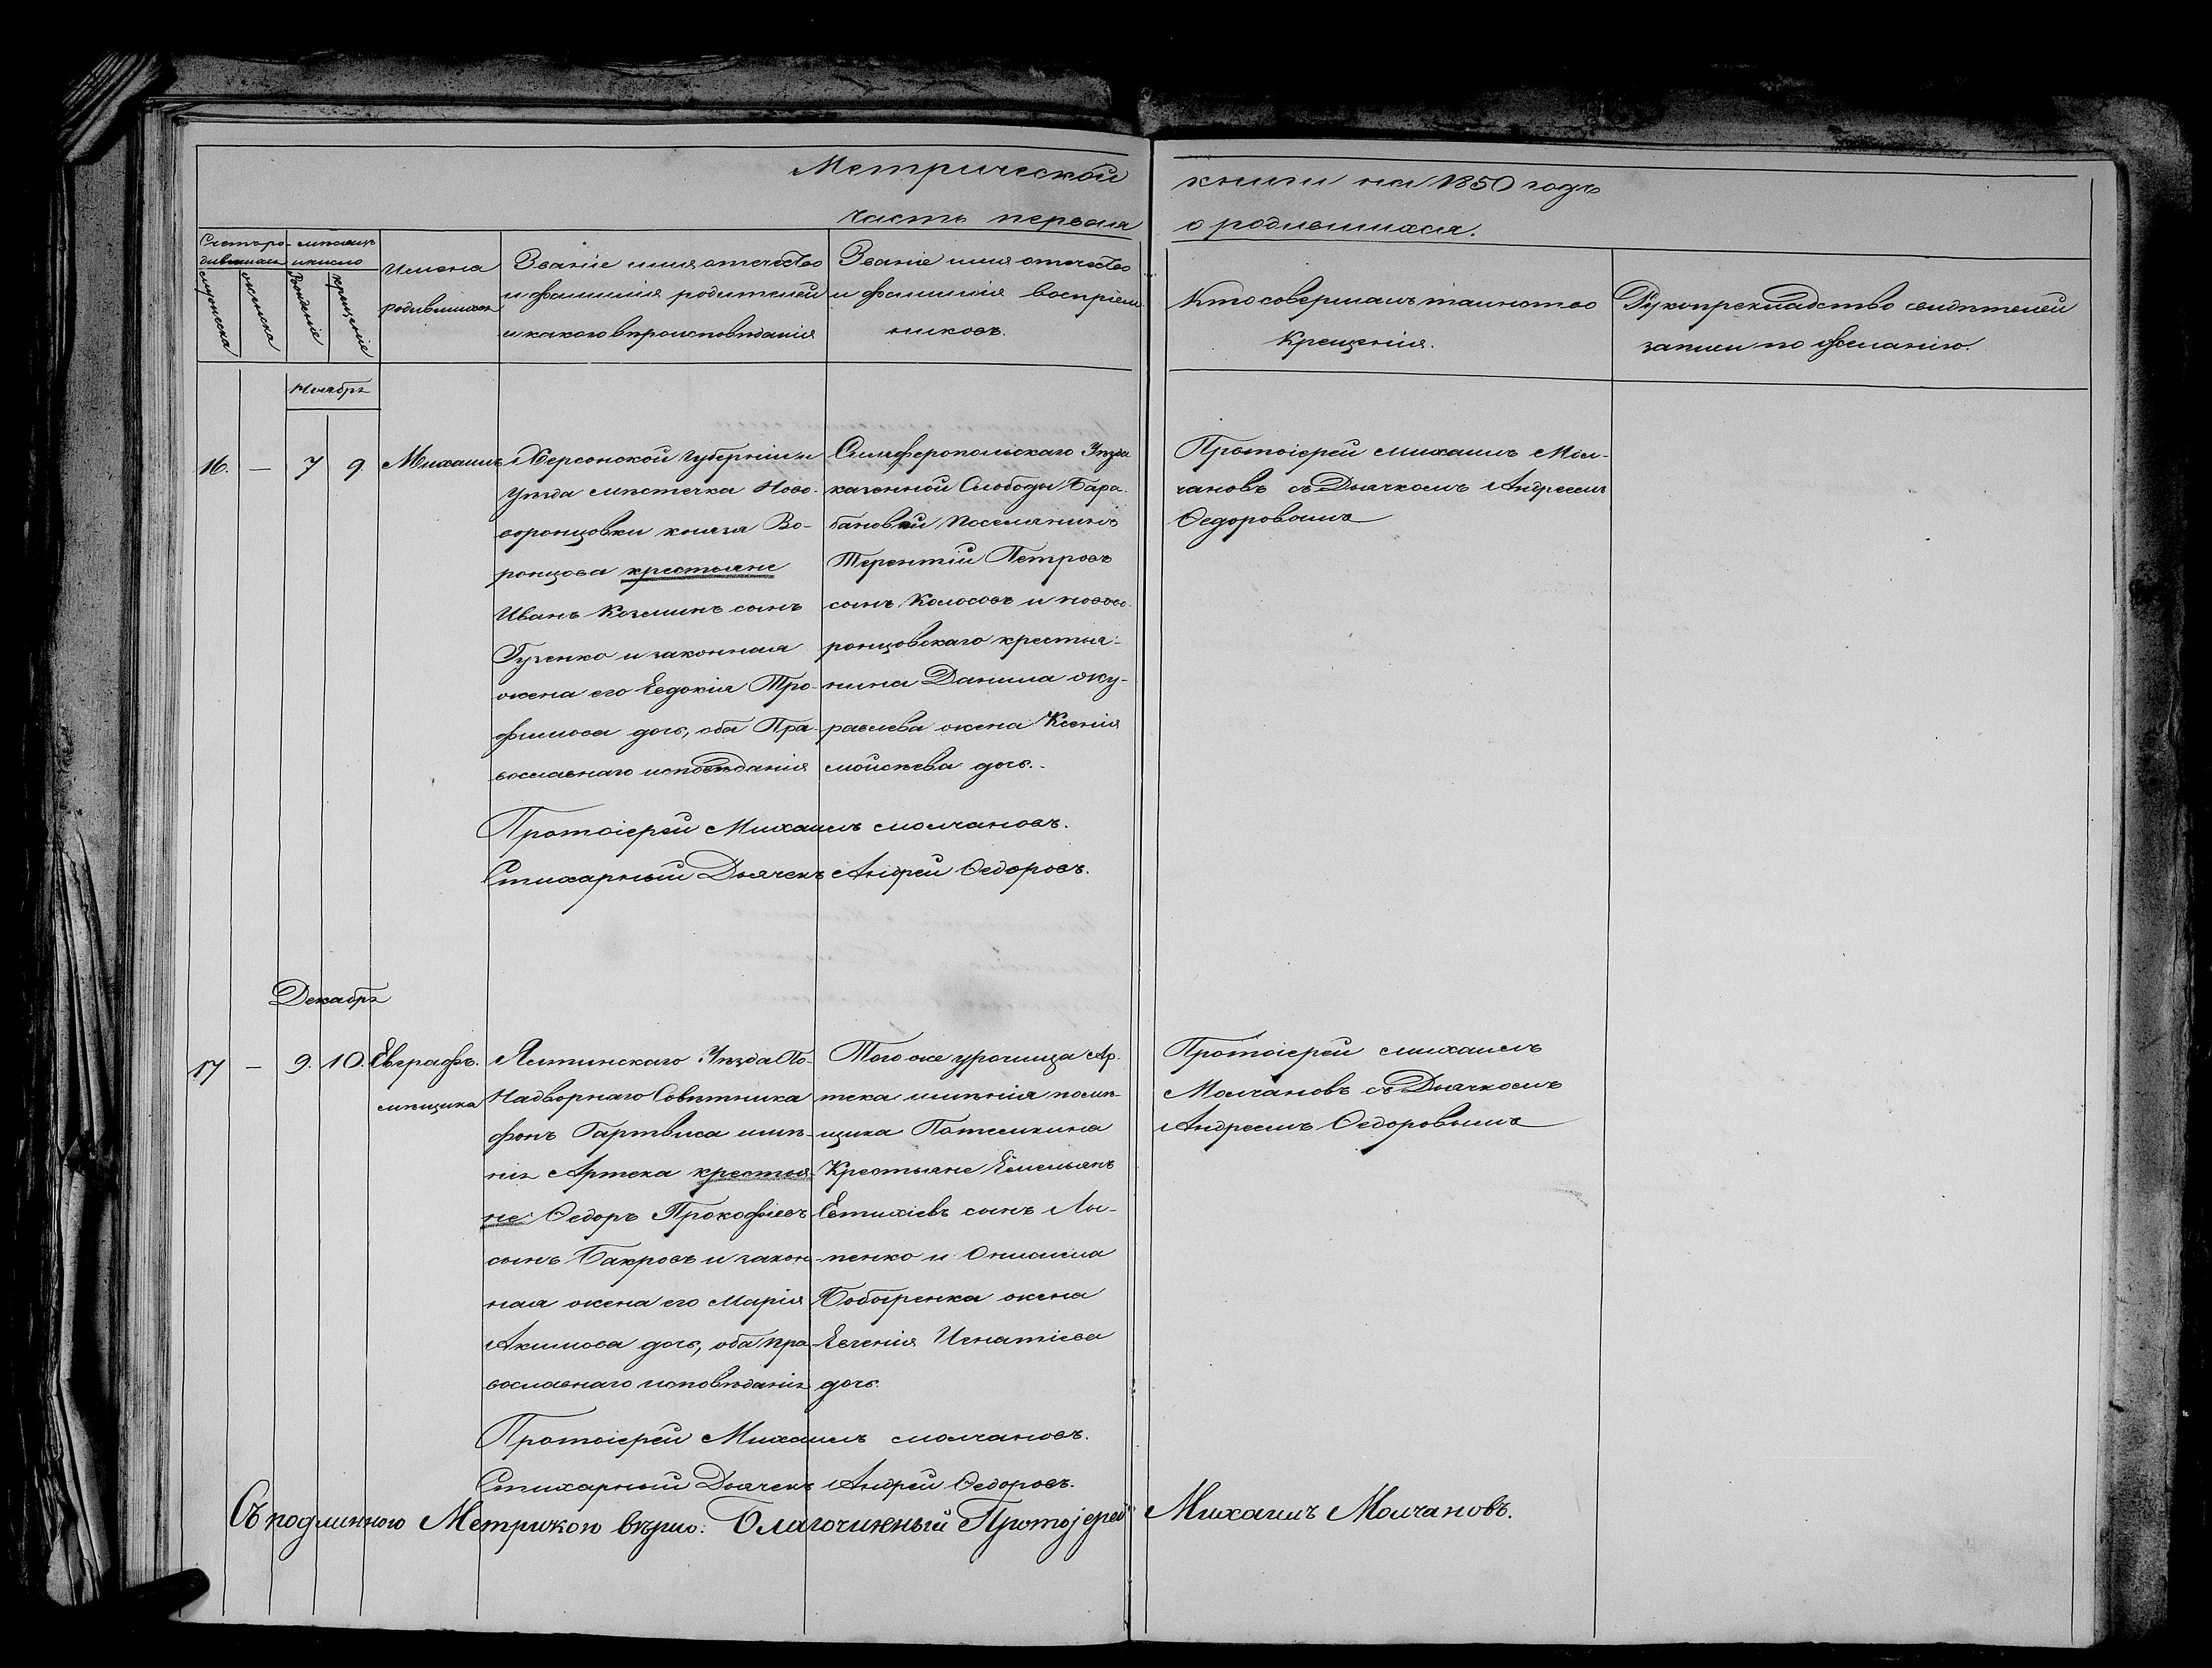 Метрической книги на 1850 годъ
часть первая о родившихся.
Счетъ ро-
дившихся
мѣсяцъ
и число
мужеска
женска
рожденіе
крещеніе
Имена
родившихся
Званіе имя отчество
и фамилія родителей
и какого вѣроисповѣданія
Званіе имя отчество
и фамилія воспріем-
никовъ.
Кто совершалъ таинство
Крещенія.
Рукоприкладство свидѣтелей
записи по желанію.
Ноябрь
16. — 7 9. Михаилъ
Херсонской Губерніи и
Уѣзда мѣстечка Ново-
воронцовки князя Во-
ронцова крестьяне
Иванъ Козминъ сынъ
Гузенко и законная
жена его Евдокія Тро-
фимова дочь, оба Пра-
вославнаго исповѣданія
Симферопольскаго Уѣзда
казенной Слободы Бара-
бановки Поселянинъ
Терентій Петровъ
сынъ Колосовъ и новово-
ронцовскаго крестья-
нина Данила Жу-
равлева жена Ксенія
Мойсѣева дочь.
Протоіерей Михаилъ Мол-
чановъ съ Дьячкомъ Андреемъ
Ѳедоровымъ
Протоіерей Михаилъ Молчановъ.
Стихарный Дьячекъ Андрей Ѳедоровъ.
Декабрь
17 — 9. 10. Евграфъ.
Ялтинскаго Уѣзда По-
мѣщика Надворнаго Совѣтника
фонъ Гартвиса имѣ-
нія Артека крестья-
не Ѳедоръ Прокофіевъ
сынъ Бакровъ и закон-
ная жена его Марія
Акимова дочь, оба пра-
вославнаго исповѣданія
Того же урочища Ар-
тека имѣнія помѣ-
щика Потемкина
Крестьяне Емельянъ
Евтихіевъ сынъ Лы-
пенко и Онисима
Бобыренка жена
Евгенія Игнатіева
дочь.
Протоіерей Михаилъ
Молчановъ съ Дьячкомъ
Андреемъ Ѳедоровымъ
Протоіерей Михаилъ Молчановъ.
Стихарный Дьячекъ Андрей Ѳедоровъ.
Съ подлинною Метрикою вѣрно: Благочинный Протоіерей Михаилъ Молчановъ.